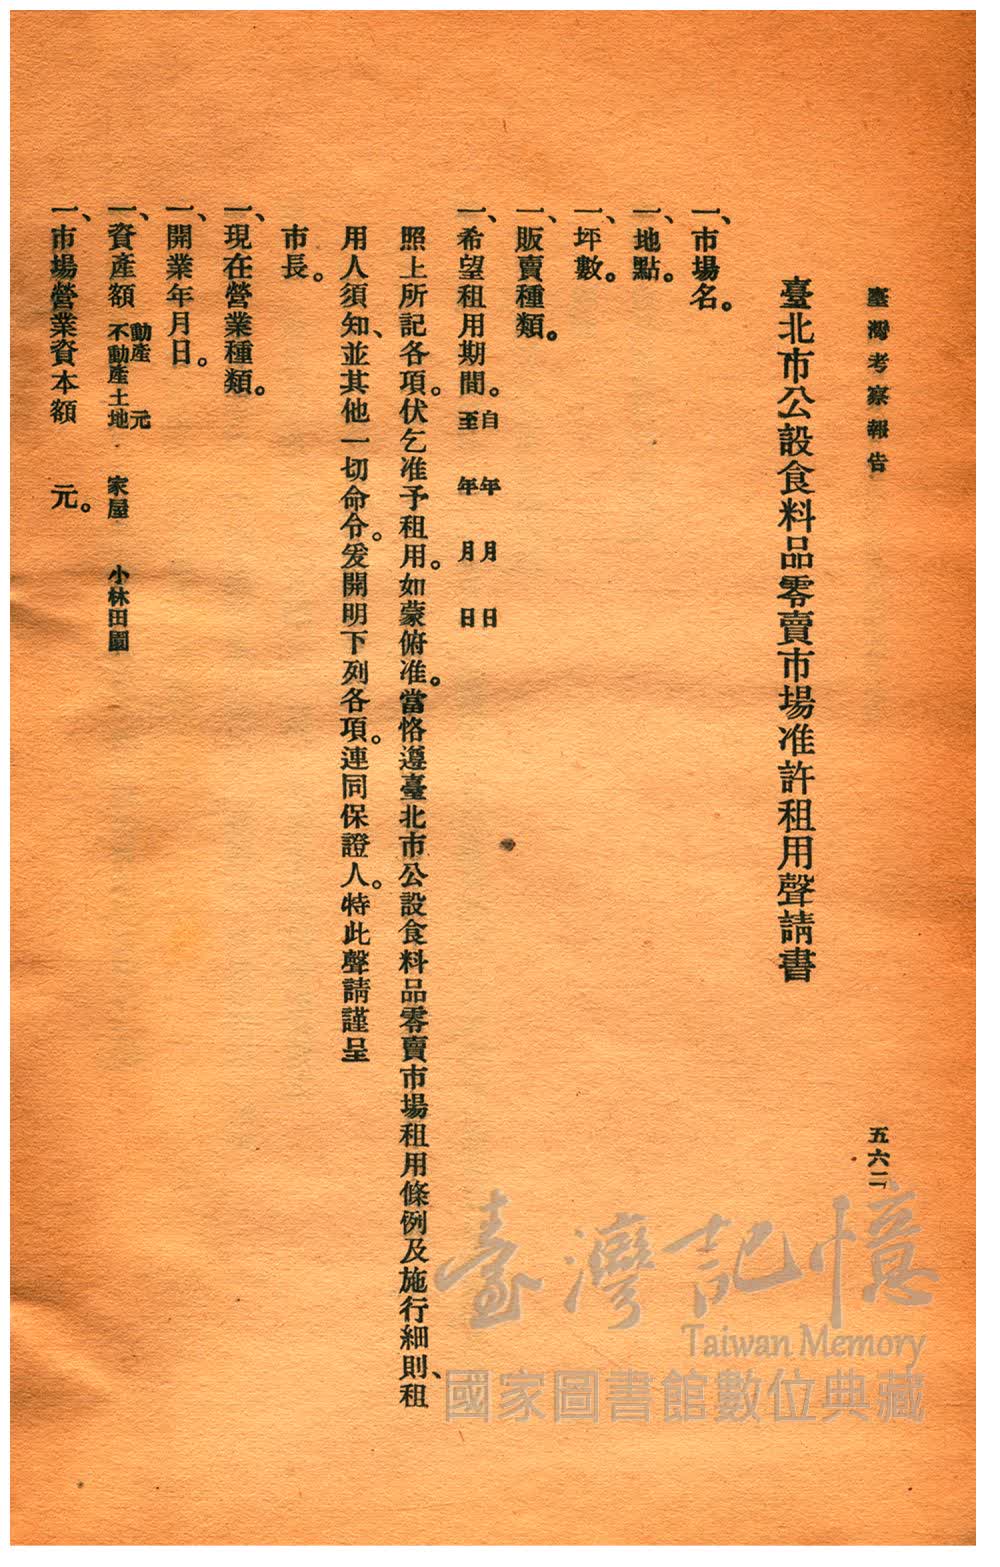 臺灣考察報告
五六二
臺北市公設食料品零賣市場准許租用聲請書
一、市場名。
一、地點。
一、坪數。
一、販賣種類。
一、希望租用期間。自 年 月 日
至 年 月 日
照上所記各項。伏乞准予租用。如蒙俯准。當恪遵臺北市公設食料品零賣市場租用條例及施行細則、租
用人須知、並其他一切命令。爰開明下列各項。連同保證人。特此聲請謹呈
市長。
一、現在營業種類。
一、開業年月日。
一、資產額 動產 元
不動產土地 家屋 小林田園
一、市場營業資本額 元。
臺灣記憶
Taiwan Memory
國家圖書館數位典藏